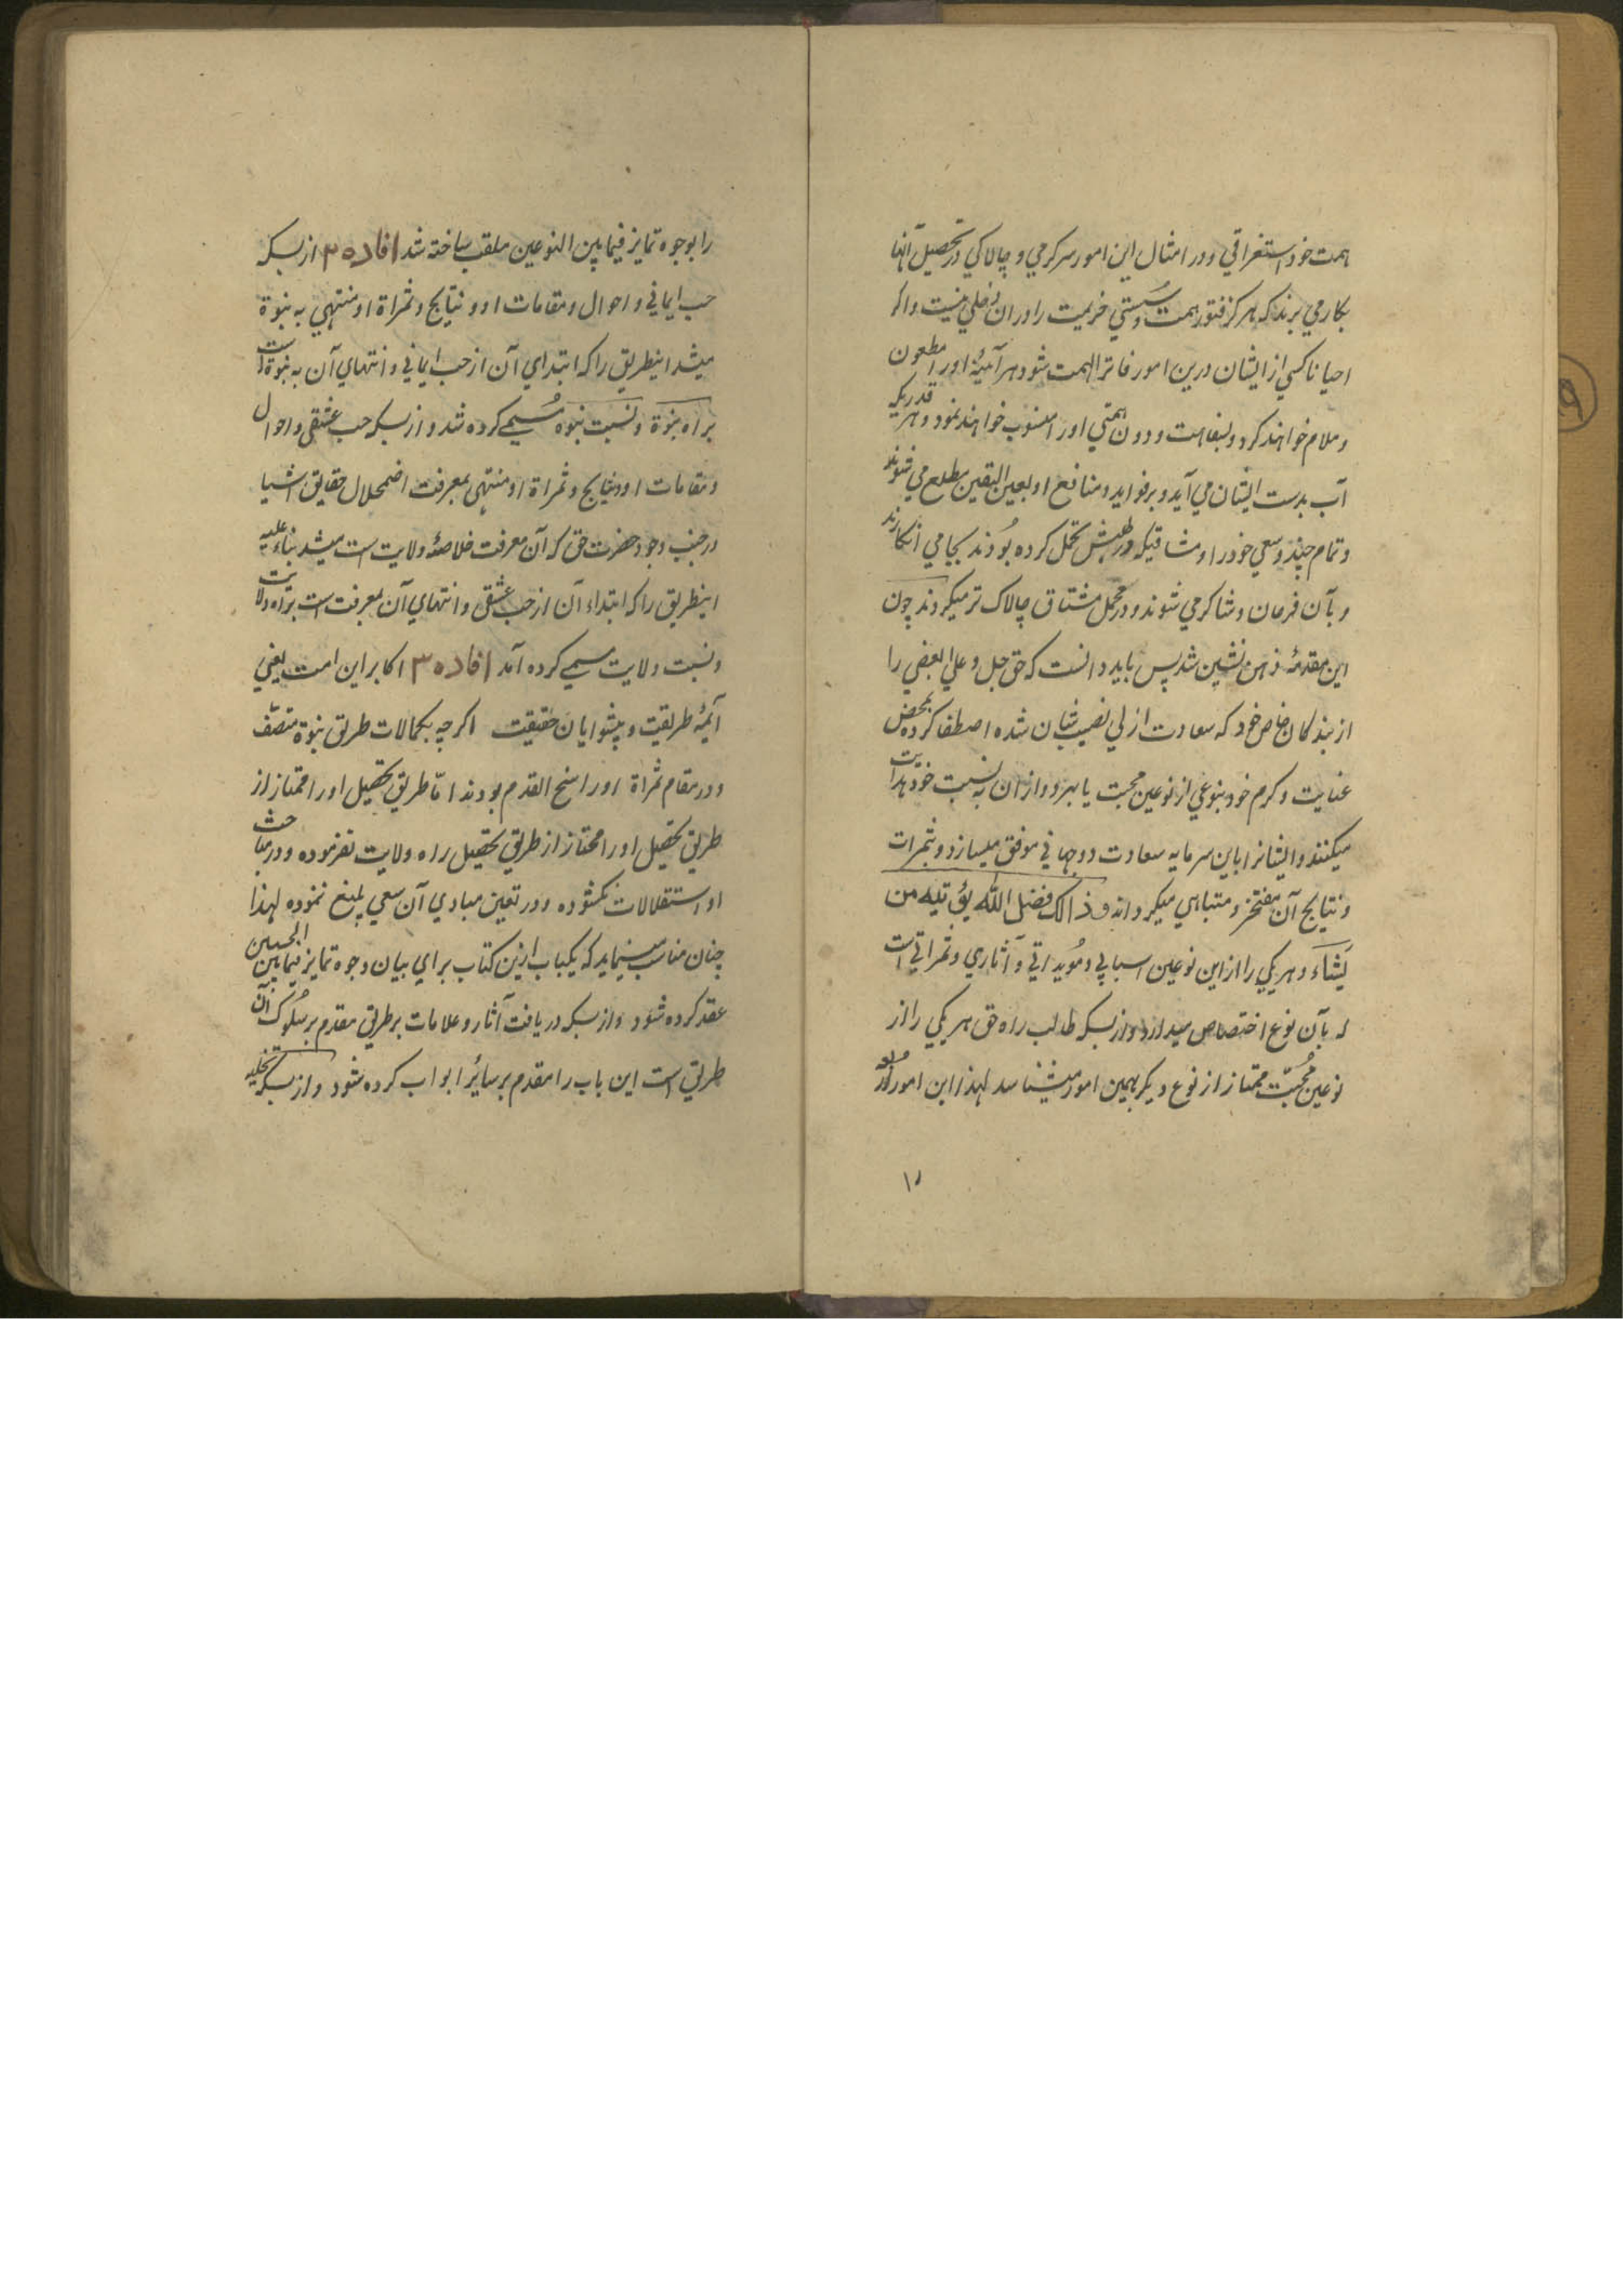 همت خود استغراقي و در امثال اين امور سركرمي و چالاكي در تحصيل آنها
بكار مي برند كه هركز فتور همت و سُستي عزيمت را در ان دخلي نيست و اكر
احيانا كسي از ايشان درين امور فاتر الهمت شود هر آئينه او را مطعون
و ملام خواهند كرد و بسفاهت و دون همتي او را منسوب خواهند نمود و هر قدريكه
آب بدست ايشان مي آيد و بر فوايد و منافع او بعين اليقين مطلع مي شوند
و تمام جهد و سعي خود را و مشاقيكه در طلبش تحمل كرده بُودند بجا مي انكارند
و بآن فرحان و شاكر مي شوند و در تحمل مشتاق چالاك تر ميكردند چون
اين مقدمهٔ ذهن نشين شد پس بايد دانست كه حق جل و علي بعضي را
از بندكان خاص خود كه سعادت ازلي نصيب شان شده اصطفا كرده بمحض
عنايت و كرم خود بنوعي از نوعين محبت يا بهر دو از ان به نسبت خود هدايت
ميكنند و ايشانرا باين سرمايه سعادت دوجهاني موفق ميسازد و بثمرات
و نتايج آن مفتخر و متباهي ميكرداند و ذالك فضل الله يؤتيه من
يَشَاء و هر يكي را از اين نوعين اسبابي و مُويداتي و آثاري و ثمراتي است
كه بآن نوع اختصاص ميدارد و از بسكه طالب راه حق هر يكي را از
نوعين مُحبّت ممتاز از نوع ديكر بهمين امور ميشناسد لهذا اين امور مذكوره
۱۰
را بوجوه تمايز فيمابين النوعين ملقب ساخته شد افاده ۲ از بسكه
حب ايماني و احوال و مقامات او و نتايج و ثمراة او منتهي به نبوة
ميشد اينطريق را كه ابتداي آن از حب ايماني و انتهاي آن به نبوة است
براه نبوة و نسبت نبوه مُسمي كرده شد و از بسكه حب عشقي و احوال
و مقامات او و نتايج و ثمراة او منتهي بمعرفت اضمحلال حقايق اشيا
در جنب وجود حضرت حق كه آن معرفت خلاصهٔ ولايت است ميشد بناءً عليه
اينطريق را كه ابتداء آن از حب عشقي و انتهاي آن بمعرفت است براه ولايت
و نسبت ولايت مسمي كرده آمد افاده ۳ اكابر اين امت يعني
آئمهٔ طريقت و پيشوايان حقيقت اكرچه بكمالات طريق نبوة متصف
و در مقام ثمراة او راسخ القدم بودند امّا طريق تحصيل او را ممتاز از
طريق تحصيل او را ممتاز از طريق تحصيل راه ولايت نفرموده و در مباحث
او استقلالات نكشوده و در تعين مبادي آن سعي بليغ ننموده لهذا
چنان مناسب مينمايد كه يكباب ازين كتاب براي بيان وجوه تمايز فيمابين الحبين
عقد كرده شود و از بسكه دريافت آثار و علامات هر طريق مقدم بر سُلوك آن
طريق است اين باب را مقدم بر سائر ابواب كرده شود و از بسكه تخليه